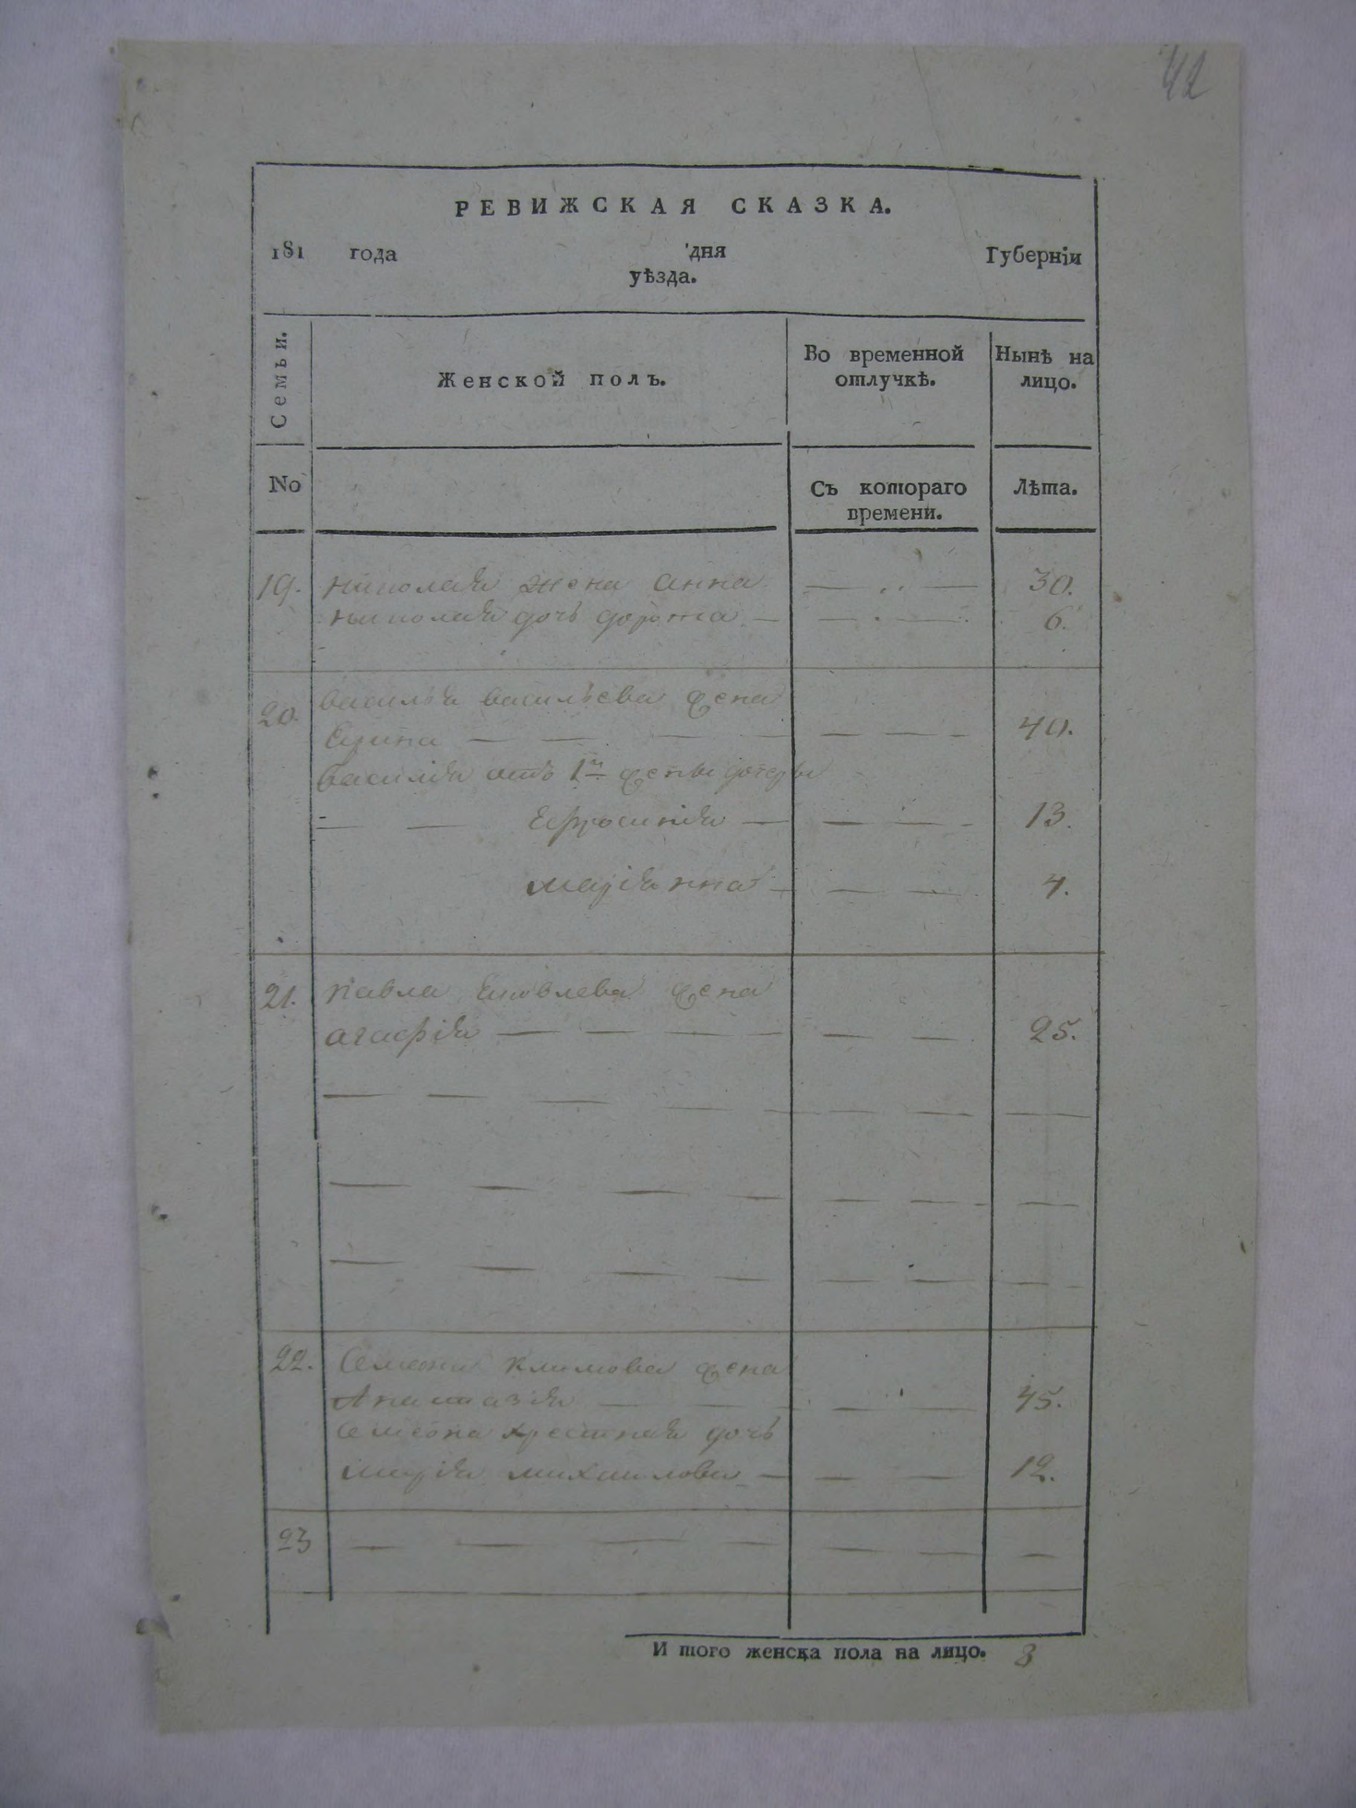 42
РЕВИЖСКАЯ СКАЗКА.
181 года дня Губерніи
уѣзда.
Семьи. Женской полъ. Во временной отлучкѣ. Нынѣ на лицо.
No Съ котораго времени. Лѣта.
19. Николая жена анна — .. — 30.
Николая дочь дорота — — . — 6.
20. Василья васильева жена
Ирина — — — — — — — 40.
Василія отъ 1й жены дочери
— — Ефросинія — — — - 13.
маріанна - — — 4.
21. Павла Яковлева жена
агафія — — — — — — 25.
— — — — — — — — —
— — — — — — — —
— — — — — — — —
22. Семена климова жена
Анастазія — — — — — 45.
Семена хрестная дочь
марія михаилова — — — 12.
23 — — — — — — —
И того женска пола на лицо. 8